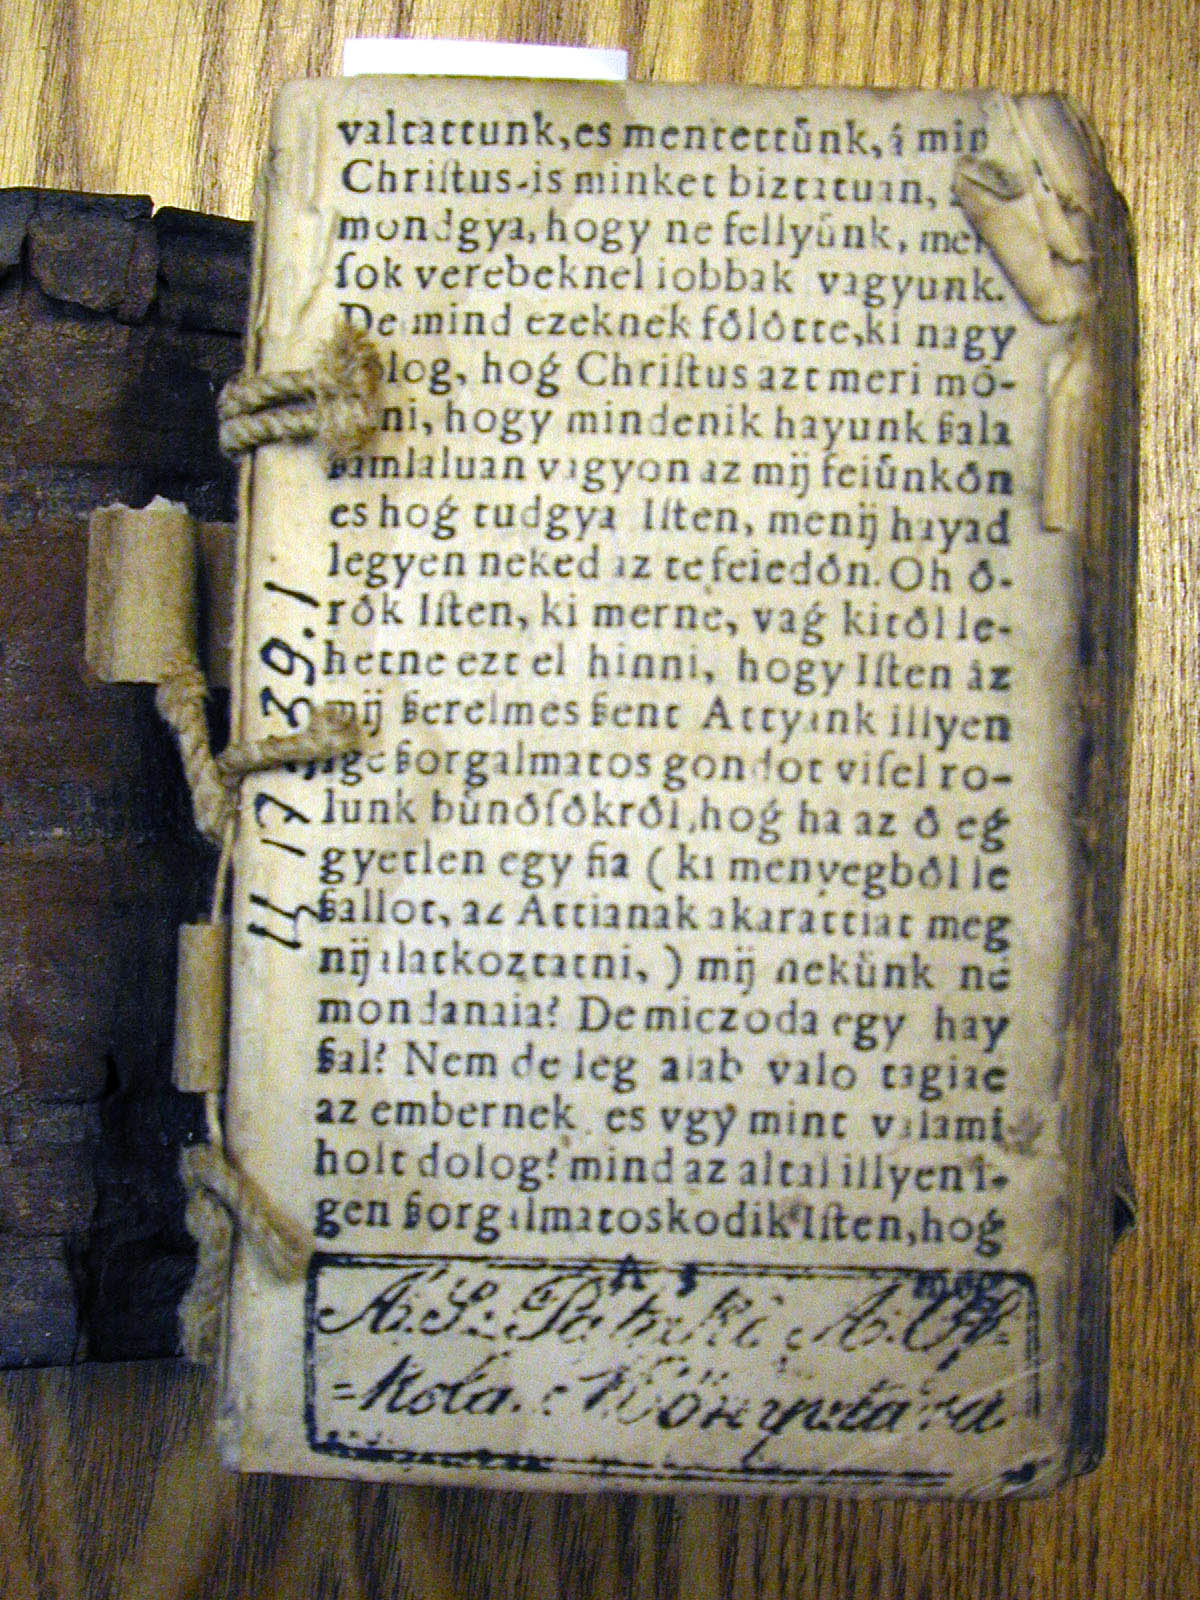 valtattunk, es mentettůnk, á min
Chriſtus-is minket biztatuan,
mondgya, hogy ne fellyůnk, mer
ſok verebeknel iobbak vagyunk.
De mind ezeknek fðlðtte, ki nagy
dolog, hoǵ Chriſtus azt meri mó-
ni, hogy mindenik hayunk ßala
ßamlaluan vagyon az mij feiůnkðn
es hoǵ tudgya Iſten, menij hayad
legyen neked az te feiedðn. Oh ð-
rðk Iſten, ki merne, vaǵ kitðl le-
hetne ezt el hinni, hogy Iſten áz
mij ßerelmes ßent Attyank illyen
ige ßorgalmatos gondot viſel ro-
lunk bůnðſðkrðl, hoǵ ha az ð eg
gyetlen egy fia ( ki menyegbðl le
ßallot, az Attianak akarattiat meg
nij ilatkoztatni, ) mij nekůnk ne
mondanaia? De miczoda egy hay
ßal? Nem de leg alab valo tagiae
az embernek es vgy mint valami
holt dolog? mind az altal illyen i-
gen ßorgalmatoskodik Iſten, hog
A 3
A. S. Pataki A. Os-
-kola. Könyvtára
17 39.1